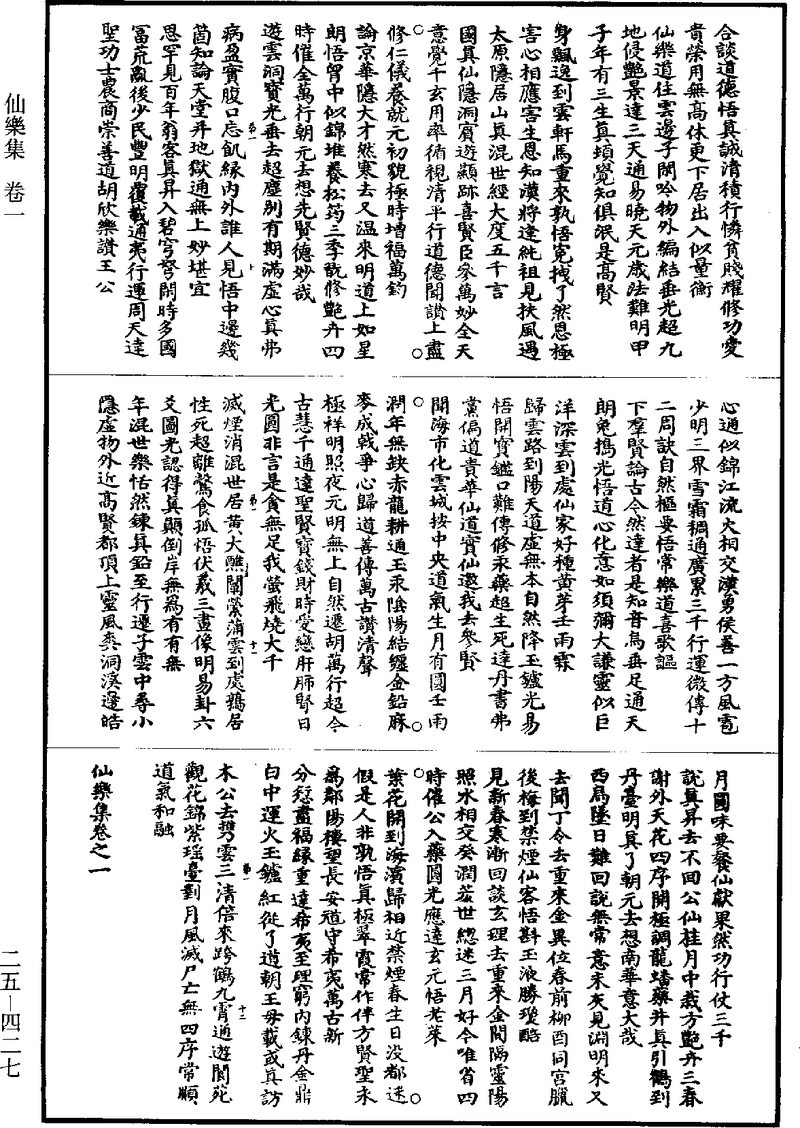 仙樂集　卷一
合談道德悟真誠清積行憐貧賤耀修功愛
貴榮用無高休更下居出入似量衡
仙樂道住雲邊子閑吟物外編結垂光超九
地侵艷景達三天通易曉天元歲法難明甲
子年有三生真頊覺知俱泯是高賢
身飄逸到雲軒馬重來孰悟冤找了然恩極
害心相應害生恩知漢將逢純祖見扶風遇
太原隱居山真混世經大度五千言
國真仙隱洞賓遊顯跡喜賢臣參萬妙全天
意覺千玄用率循視清平行道德聞讚上盡
修仁儀養就元初貌極時增福萬鈞
論京華隱大才然寒去又溫來明道上如星
朗悟胷中似錦堆養松筠三季翫修艷卉四
時催金萬行朝元去想先賢德妙哉
遊雲洞寶光垂去超塵別有期滿虛心真弗
病盈實腹口忘飢緣內外誰人見悟中邊幾
箇知論天堂并地獄通無上妙堪宜
思罕見百年翁客真昇入碧穹穹闊時多國
富荒亂後少民豐明覆載通夷行運周天達
聖功士農商崇善道胡欣樂讚王公
心通似錦江流火相交漢勇侯善一方風雹
少明三界雪霜稠通廣累三千行運微傳十
二周訣自然樞要悟常樂道喜歌謳
下羣賢論古今然達者是知音烏垂足通天
朗兔搗光悟道心化意如須彌大謙靈似巨
洋深雲到處仙家好種黃芽壬雨霖
歸雲路到陽天道虛無本自然降玉鑪光易
悟開寶鑑口難傳修汞藥超生死達丹書弗
黨偏道貴華仙道寶仙邀我去參賢
開海市化雲城按中央道氣生月有圓壬雨
潤年無缺赤龍耕通玉汞陰陽結纏金鉛麻
麥成戟爭心歸道善傳萬古讚清聲
極祥明照夜元明無上自然遷胡萬行超今
古慧千通達聖賢寶錢財時愛戀肝肺腎日
光圓非言是貪無足我螢飛燒大千
滅煙消混世居黃大醮闡縈蒲雲到處鶉居
性死超離鷇食孤悟伏羲三畫像明易卦六
爻圖光認得真顛倒岸無為有有無
年混世樂怡然鍊真鉛至行遷子雲中尋小
隱虛物外近高賢都頂上靈風爽洞溪邊皓
月圓味要餐仙獻果然功行仗三千
說真昇去不回公仙桂月中栽方艷卉三春
謝外天花四序開極調龍蟠藥井真引鶴到
丹臺明真了朝元去想南華意大哉
西烏墜日難回說無常意未灰見淵明來又
去聞丁令去重來金異位春前柳酉同宮臘
後梅到禁煙仙客悟斟玉液勝瓊醅
見新春寒漸回談玄理去重來金間隔靈陽
照水相交癸潤荄世緫迷三月好今唯省四
時催公入藥圓光應達玄元悟老萊
葉花開到海濱歸相近禁煙春生日沒都迷
假是人非孰悟真極翠霞常作伴方賢聖永
為鄰陽樓望長安道守希夷萬古新
分愆盡福緣重達希夷至理窮內鍊丹金鼎
白中運火玉鑪紅從了道朝王母載或真訪
木公去剪雲三清倍來跨鶴九霄通遊閬苑
觀花錦紫瑤臺對月風滅尸亡無四序常順
道氣和融
仙樂集卷之一
二五—四二七